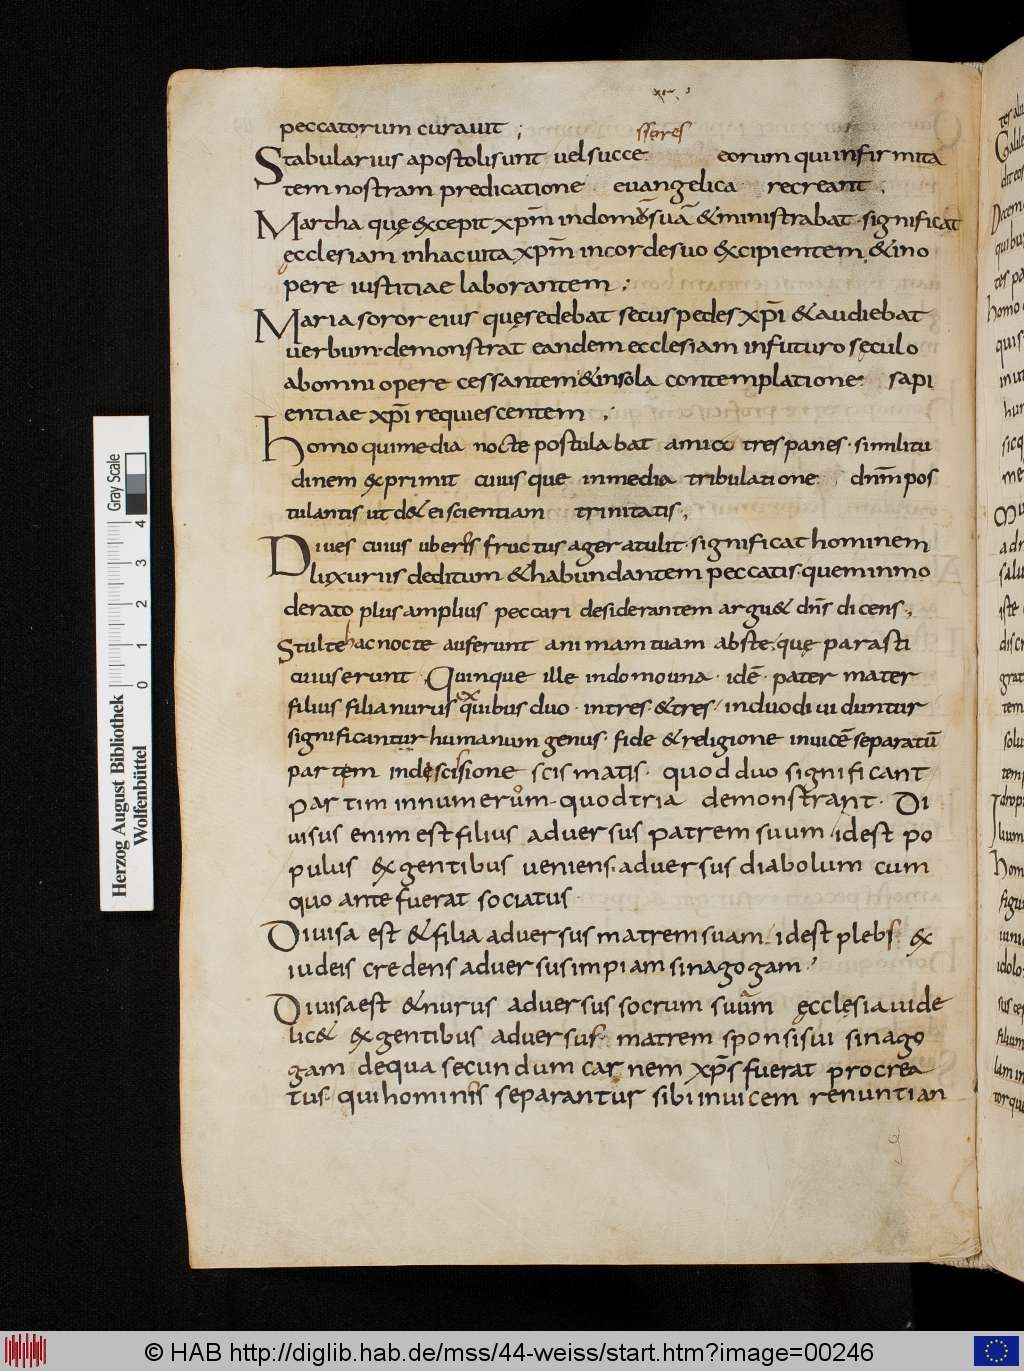 peccatorum curauit ;
Stabularius apostoli sunt uel succe ssores eorum qui infirmita
tem nostram predicatione euangelica recreant .
Martha quę excepit xp̄m in domo suā & ministrabat · significat
ęcclesiam in hac uita xp̄m in corde suo excipientem, & in o
pere iustitiae laborantem ;
Maria soror eius quę sedebat secus pedes xp̄i & audiebat
uerbum · demonstrat eandem ecclesiam in futuro sęculo
ab omni opere cessantem & in sola contemplatione sapi
entiae xp̄i requiescentem ;
homo qui media nocte postulabat amico tres panes · similitu
dinem exprimit cuiusque in media tribulatione dn̄m pos
tulantis ut d& ei scientiam trinitatis ,
Diues cuius uberes fructus ager atulit · significat hominem
luxuriis deditum & habundantem peccatis · quem inmo
derato plus amplius peccari desiderantem argu& dn̄s dicens ,
Stulte hac nocte auferunt animam tuam abs te, quę parasti
cuius erunt . Quinque ille in domo una · idē · pater mater
filius filia nurus quibus duo · in tres · & tres / in duo diuiduntur
significantur humanum genus · fide & religione inuicē separatū
partem in descisione scismatis · quod duo significant
partim in numerum · quod tria demonstrant · Di
uisus enim est filius aduersus patrem suum / id est po
pulus ex gentibus ueniens · aduersus diabolum cum
quo ante fuerat sociatus ·
Diuisa est & filia aduersus matrem suam · id est plebs ex
iudeis credens aduersus impiam sinagogam ·
Diuisa est & nurus aduersus socrum suum ęcclesia uide
lic& ex gentibus aduersus matrem sponsi sui sinago
gam de qua secundum carnem xp̄s fuerat procrea
tus · qui hominis separantur sibi inuicem renuntian
Herzog August Bibliothek
Wolfenbüttel
Gray Scale
0 1 2 3 4
© HAB http://diglib.hab.de/mss/44-weiss/start.htm?image=00246